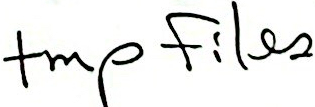 tmp Files